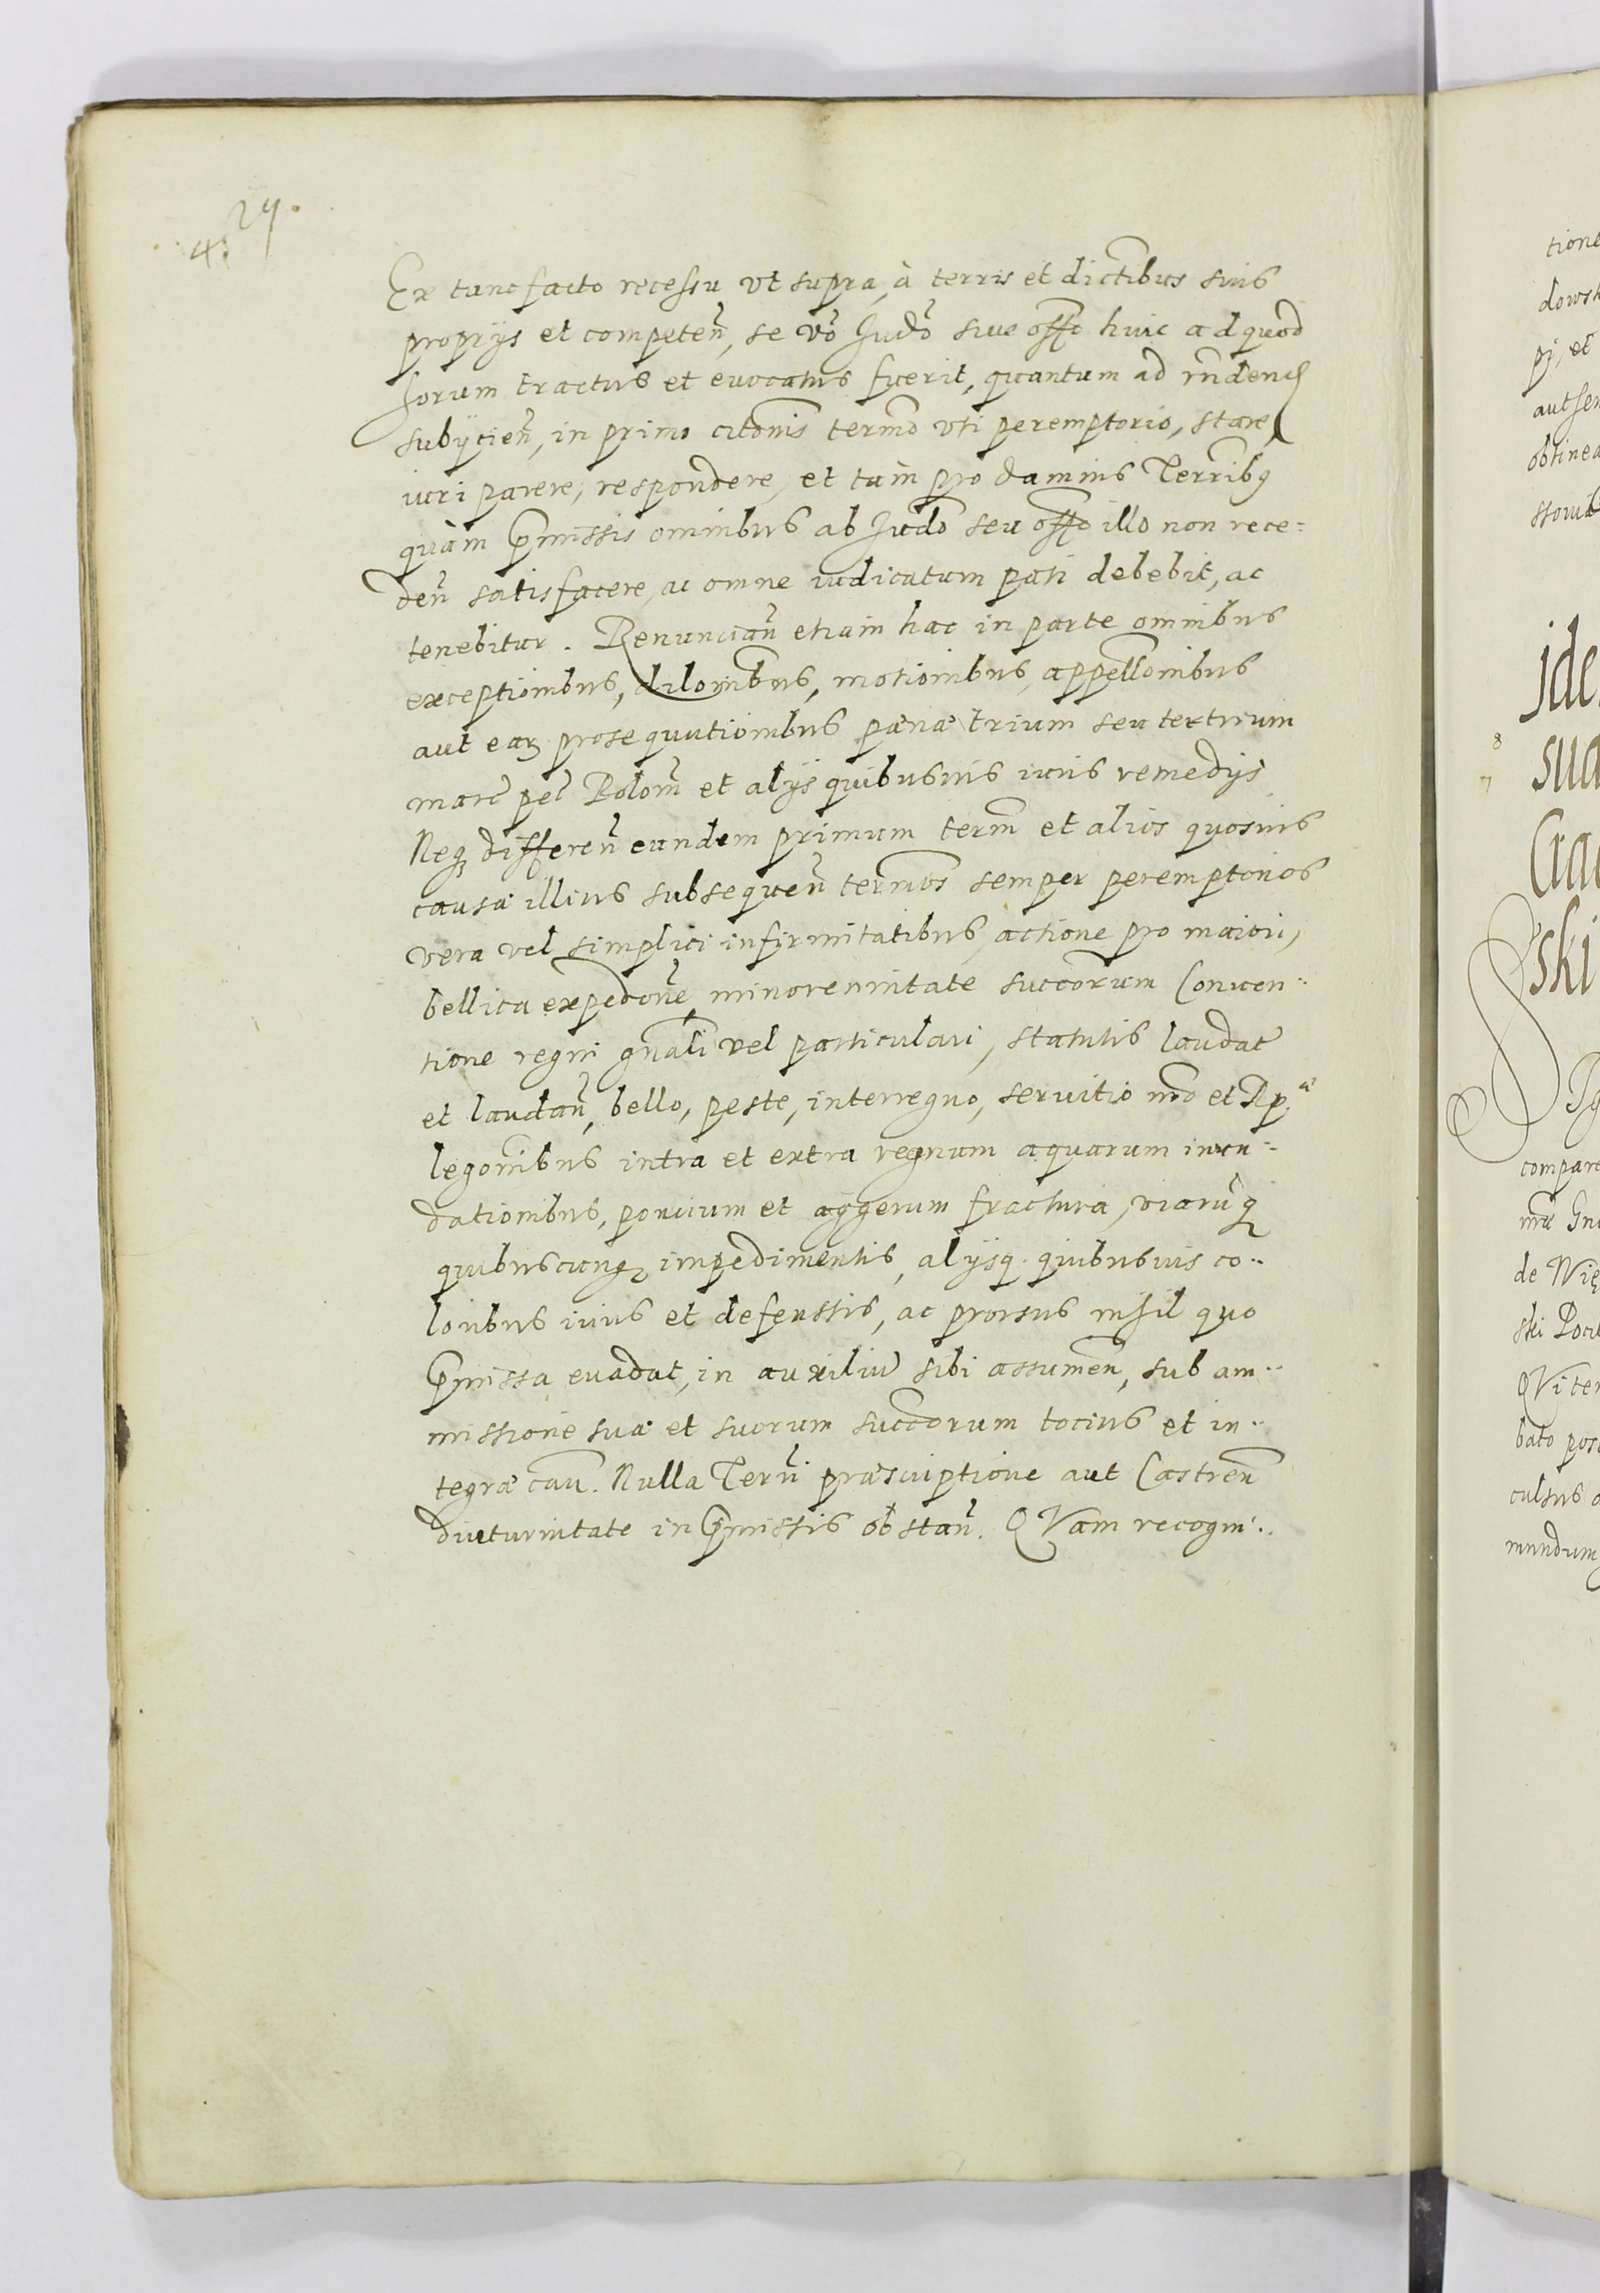 29.
43
Ex tunc facto recessu vt supra, à terris et dictibus suis
proprijs et competeñ, se vo Judo siue offo huic ad quod
forum tractus et euocatus fuerit, quantum ad rñdend
subÿcieñ, in primo citonis termo vti peremptorio, stare,
iuri parere, respondere, et tam pro damnis Terribq
quàm pmissis omnibus ab Judo seu offo illo non rece:
deñ satisfacere, ac omne iudicatum pati debebit, ac
tenebitur. Renunciañ etiam hac in parte omnibus
exceptionibus, dilonibus, motionibus, appellonibus
aut earz prosequutionibus pænæ trium seu tertium
marc pec Polom et alÿs quibusuis iuris remedÿs
Neqz differeñ eundem primum term et alios quosuis
causæ illius subsequeñ termos semper peremptorios
vera vel simplici infirmitatibus, actione pro maiori,
bellica expedone, minorennitate succorum Conuen:
tione regni gnali vel particulari, statutis laudat
et laudañ, bello, peste, interregno, seruitio nro et Rp.æ
legonibus intra et extra regnum aquarum inun:
dationibus, poncium et aggerum fractura, viaruq
quibuscunqz impedimentis, alÿsq. quibusuis co:
loribus iuris et defenssis, ac prorsus nihil quo
pmissa euadat, in auxiliu sibi assumeñ, sub am:
missione suæ et suorum succorum tocius et in:
tegræ cau. Nulla Terrñ præscriptione aut Castreñ
diuturnitate in pmissis obstañ. QVam recogni:
tione
dowsk
pj, et
aut sen
obtinea
ssouia
jde
sua
Cra
ski
compare
nra Gn
de Wię
ski Poct
QVi ter
bato pos
culsus
mundum